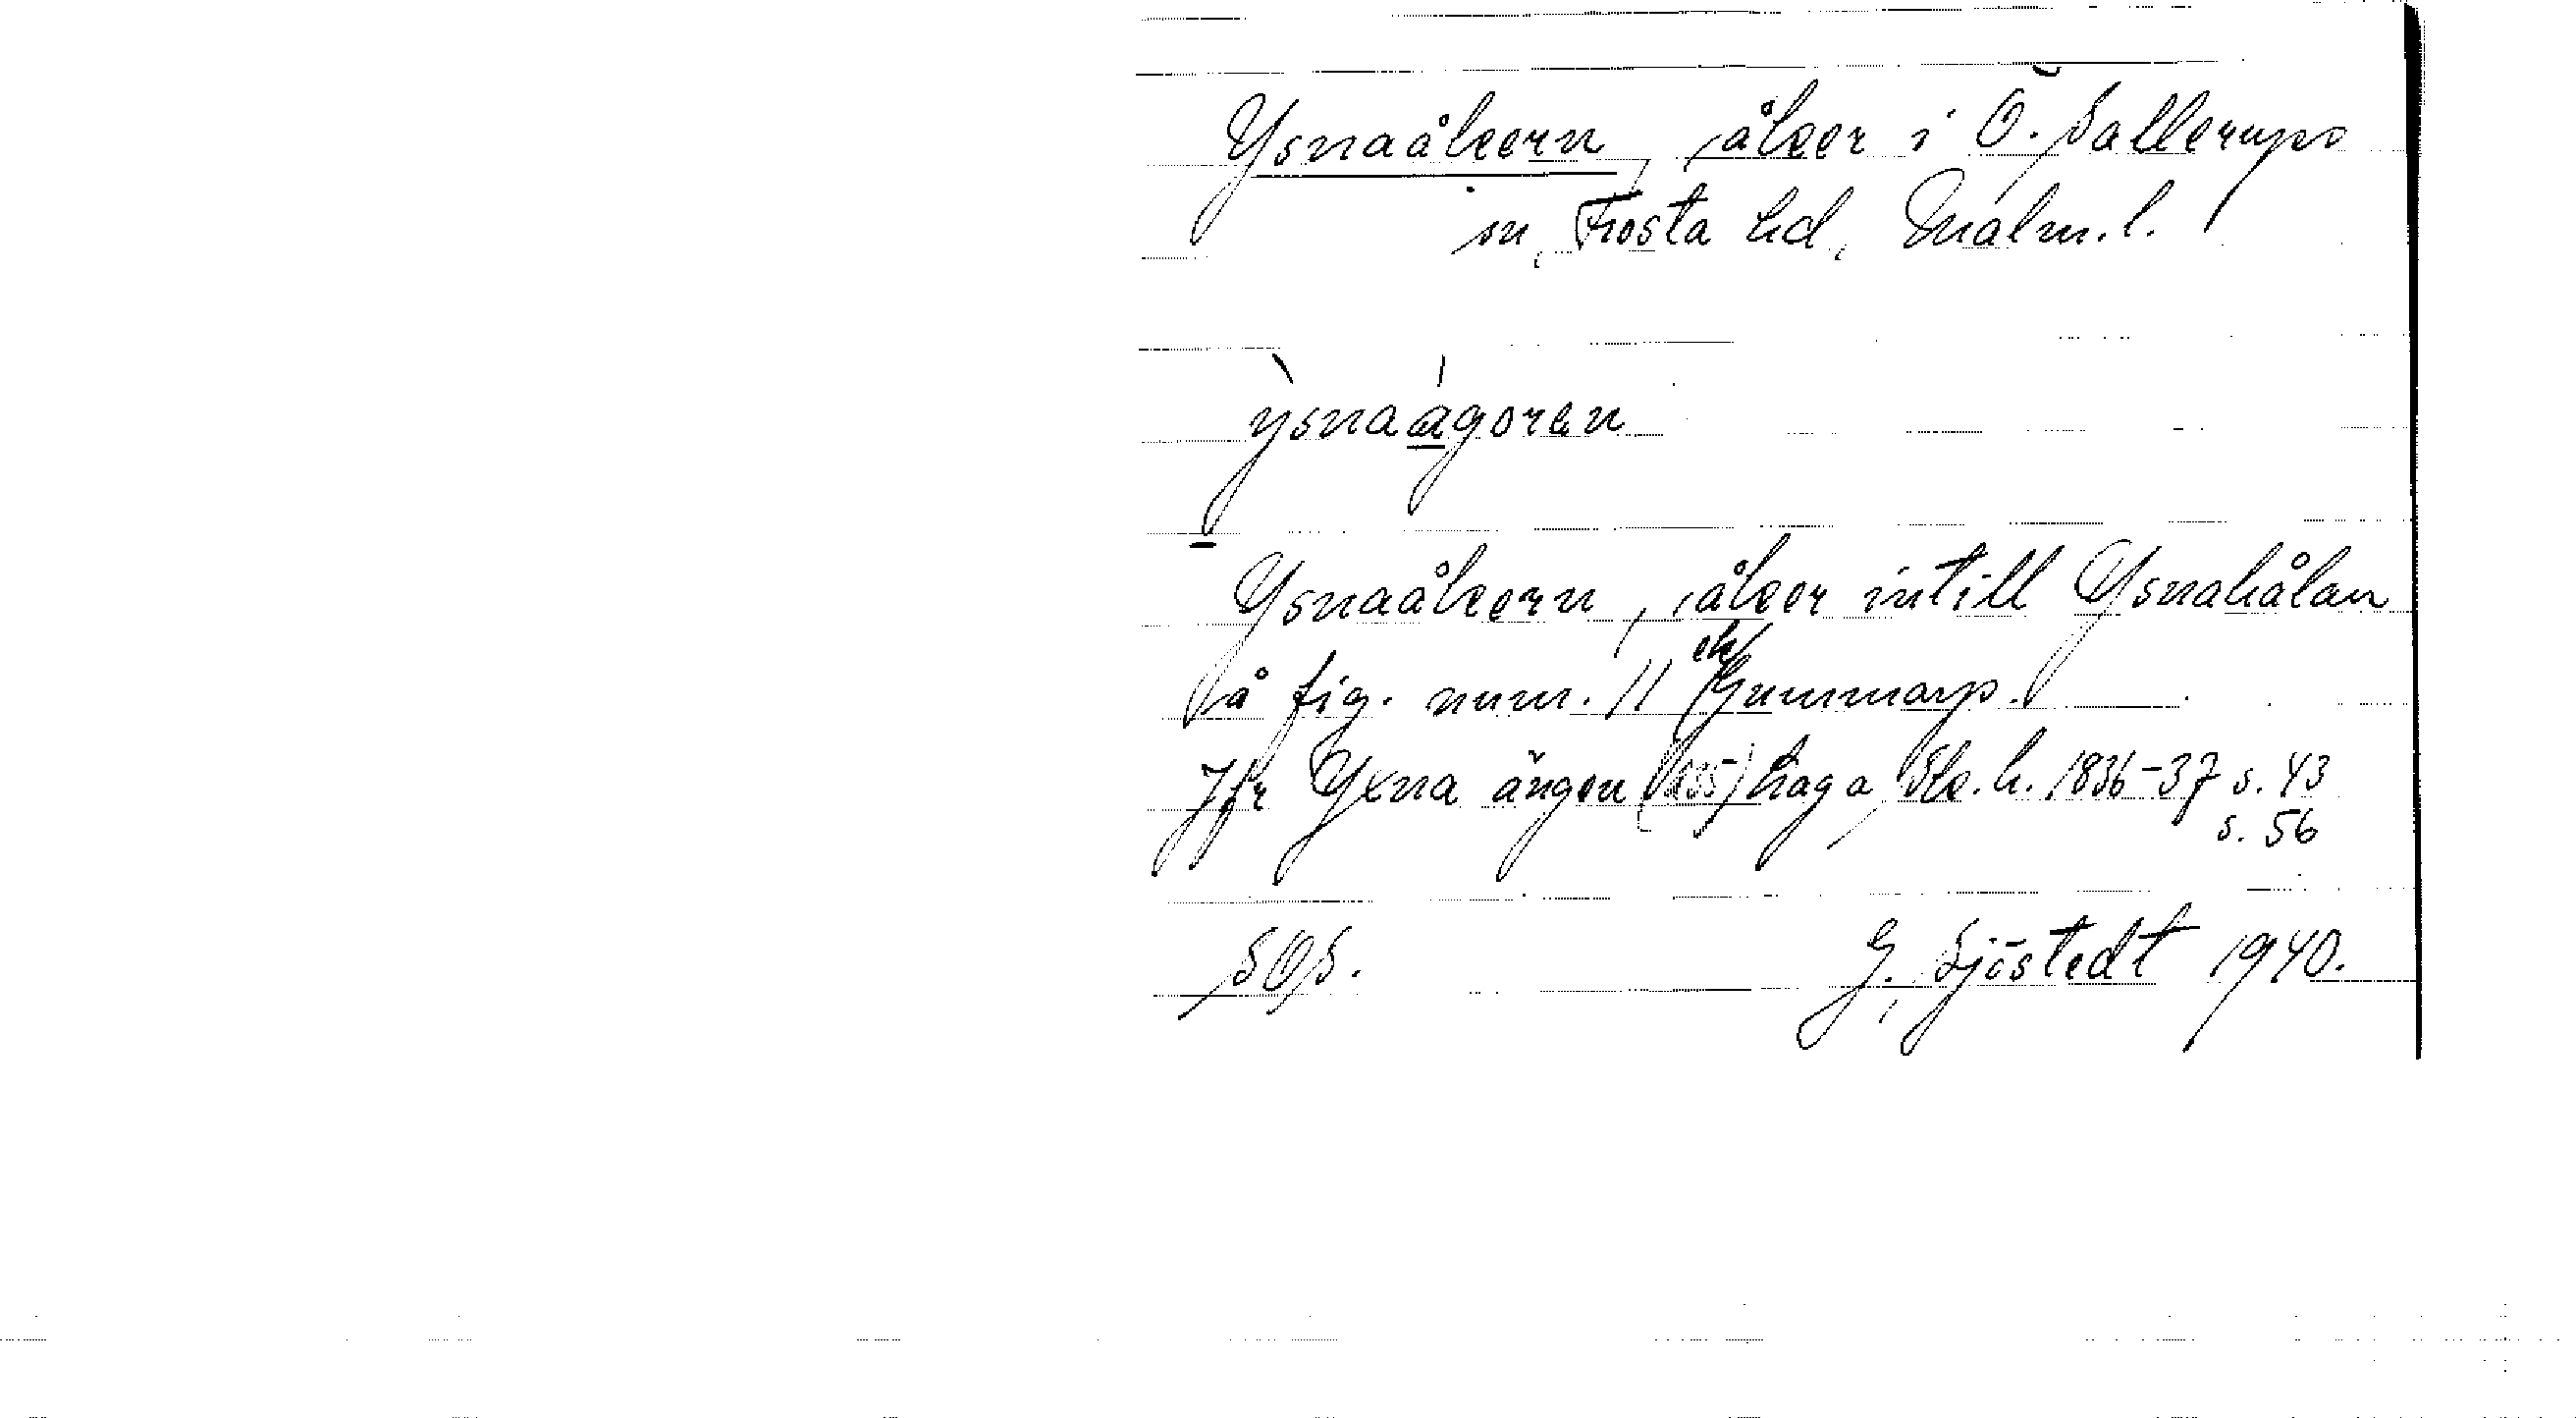 Ysnaåkern, åker i Ö. Sallerups
sn, Frosta hd, Malm. l.
ysnaagoren
Ysnaåkern, åker intill Ysnahålan
å fig. num. 11 Gummarp.
Jfr Yxna ängen (135) haga, Sk. h. 1836-37 s. 43
s. 56
SOS.
G. Sjöstedt 1940.